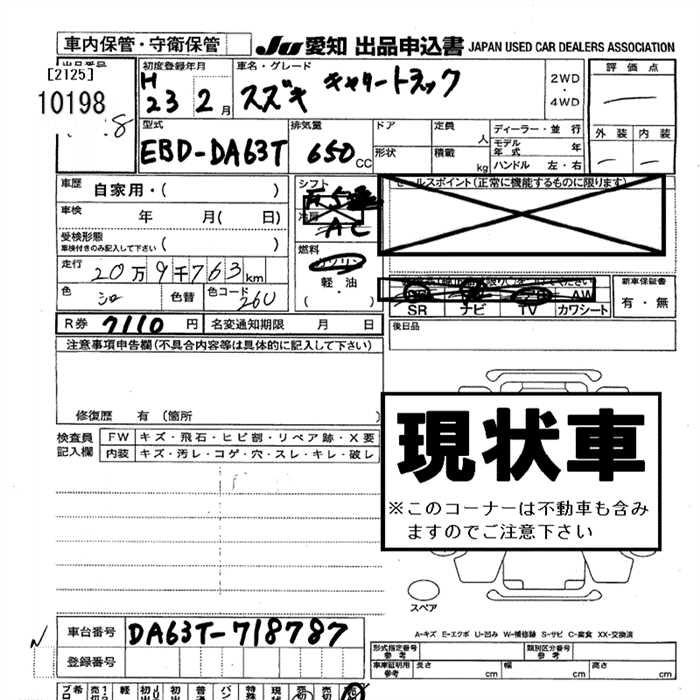 車内保管・守衛保管
JU 愛知 出品申込書 JAPAN USED CAR DEALERS ASSOCIATION
[2125]
10198
初度登録年月
H
23 2月
車名・グレード
スズキ キャリートラック
2WD
・
4WD
評価点
外装 内装
型式
EBD-DA63T
排気量
650CC
ドア
形状
定員
人
積載
kg
ディーラー・並行
モデル年式 年
ハンドル 左・右
車歴 自家用・( )
車検 年 月( 日)
受検形態
車検付きのみ記入して下さい ( )
走行 20万9千763km
色 シロ 色替 色コード 26U
シフト
AC
燃料
ガソリン
軽・油
( )
セールスポイント(正常に機能するものに限ります)
AW
SR ナビ TV カワシート
新車保証書
有・無
R券 7110円 名変通知期限 月 日
後日品
注意事項申告欄(不具合内容等は具体的に記入して下さい)
修復歴 有(箇所 )
検査員記入欄
FW キズ・飛石・ヒビ割・リペア跡・X要
内装 キズ・汚レ・コゲ・穴・スレ・キレ・破レ
現状車
※このコーナーは不動車も含み
ますのでご注意下さい
スペア
A-キズ E-エクボ U-凹み W-補修跡 S-サビ C-腐食 XX-交換済
N
車台番号 DA63T-718787
登録番号
形式指定番号 参考
類別区分番号 参考
車庫証明用 参考 長さ cm 幅 cm 高さ cm